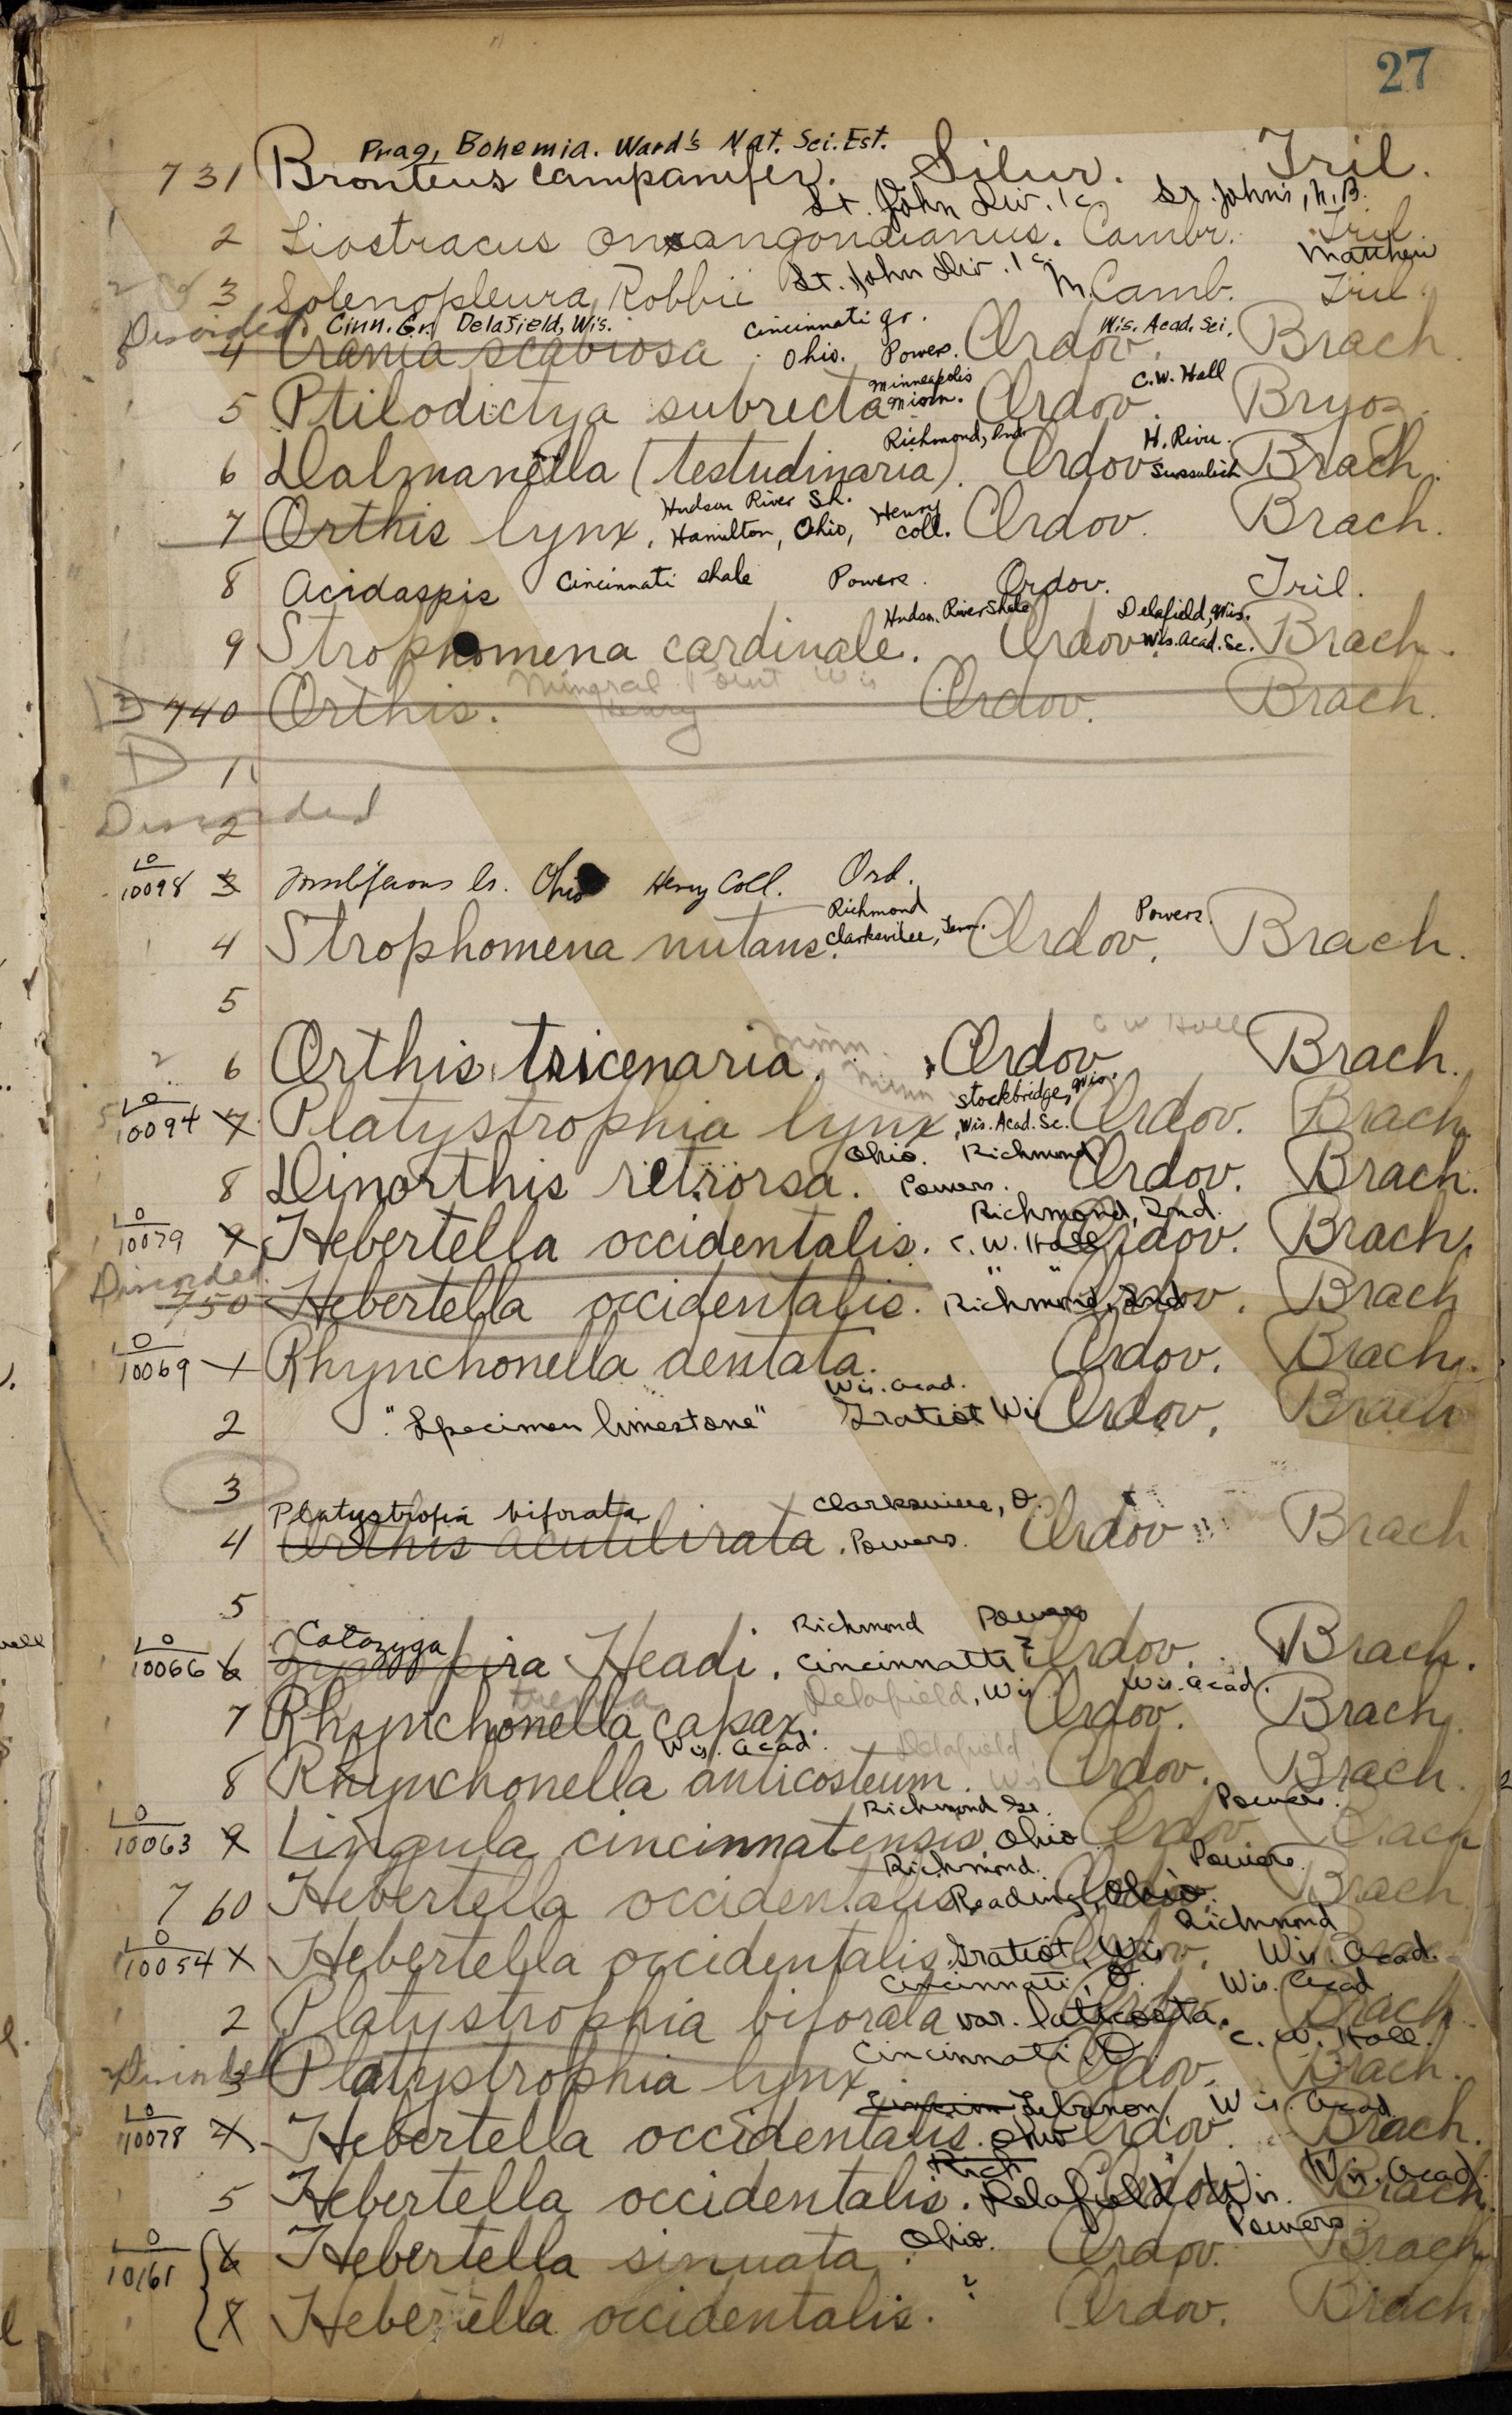 27
Prag, Bohemia. Ward's Nat. Sci. Est.
731 Bronteus campanifer. Silur. Tril.
St. John Div. 1c. St. Johns, N.B.
2 Liostracus onxangondianus. Cambr. Tril.
St. John Div. 1c Matthew
3 Solenopleura Robbii M. Camb. Tril.
Discarded Cinn. Gr. Delafield, Wis. Cincinnati gr. Wis. Acad. Sci.
4 Crania scabiosa Ohio. Powers. Ordov. Brach.
Minneapolis C.W. Hall
5 Ptilodictya subrecta Minn. Ordov. Bryoz.
Richmond, Ind. H. River
6 Dalmanella (testudinaria). Ordov Brach.
Hudson River Sh. Henry
7 Orthis lynx. Hamilton, Ohio, Coll. Ordov. Brach.
8 Acidaspis Cincinnati shale Powers. Ordov. Tril.
Hudson River Shale Delafield, Wis.
9 Strophomena cardinale. Ordov. Wis. Acad. Sc. Brach.
Mineral Point Wis
D 740 Orthis. Henry Ordov. Brach.
D 1
Discarded
2
10098 3 ls. Ohio Henry Coll. Ord.
Richmond Powers.
4 Strophomena nutans. Clarksville, Tenn. Ordov. Brach.
5
Minn. C W Hall
2 6 Orthis tricenaria. Ordov Brach.
Minn Stockbridge, Wis.
10094 7 Platystrophia lynx, Wis. Acad. Sc. Ordov. Brach.
Ohio. Richmond
8 Dinorthis retrorsa. Powers. Ordov. Brach.
Richmond, Ind.
10079 9 Hebertella occidentalis. C. W. Hall Ordov. Brach.
Discarded " "
750 Hebertella occidentalis. Richmond, Ind Ordov. Brach
10069 1 Rhynchonella dentata. Ordov. Brach.
Wis. Acad.
2 "Specimen limestone" Gratiot Wis Ordov. Brach
3
Platystrofia biforata Clarksville, O.
4 Orthis acutilirata. Powers. Ordov Brach
5
Catazyga Richmond Powers
10066 6 Headi. Cincinnatti? Ordov. Brach.
Delafield, Wis Wis. Acad.
7 Rhynchonella capax. Ordov. Brach.
Wis. Acad. Delafield
8 Rhynchonella anticosteum. Wis Ordov. Brach.
Richmond Gr. Powers.
10063 9 Lingula cincinnatensis. Ohio Ordov Brach
Richmond. Powers.
760 Hebertella occidentalis Reading, Ohio. Brach
Richmond
10054 Hebertella occidentalis. Gratiot, Wis Wis. Acad.
Cincinnati, O. Wis. Acad
2 Platystrophia biforata var. laticosta. Brach.
Cincinnati, O C. W. Hall.
3 Platystrophia lynx Ordov. Brach.
Lebanon, Wis. Acad
10078 4 Hebertella occidentalis. Ohio Ordov. Brach.
Rich Wis. Acad.
5 Hebertella occidentalis. Delafield, Wis. Brach.
Ohio. Powers.
10161 6 Hebertella sinuata. Ordov. Brach.
?
7 Hebertella occidentalis. Ordov. Brach